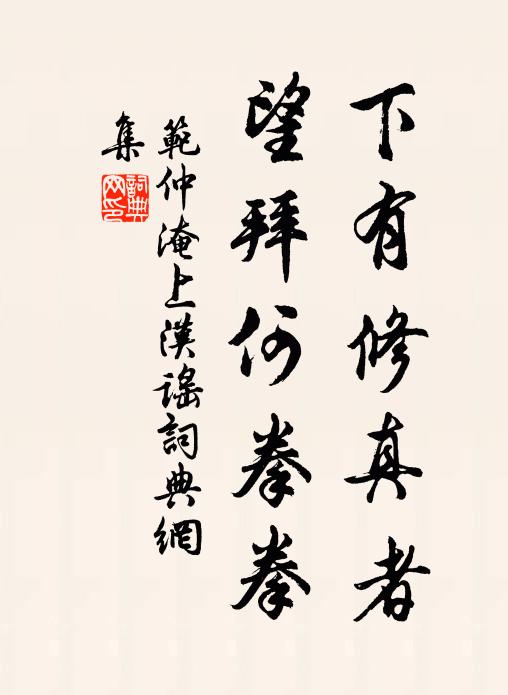 下有修真者
望拜何拳拳
範仲淹上漢謠詞典網
集
詞典網印